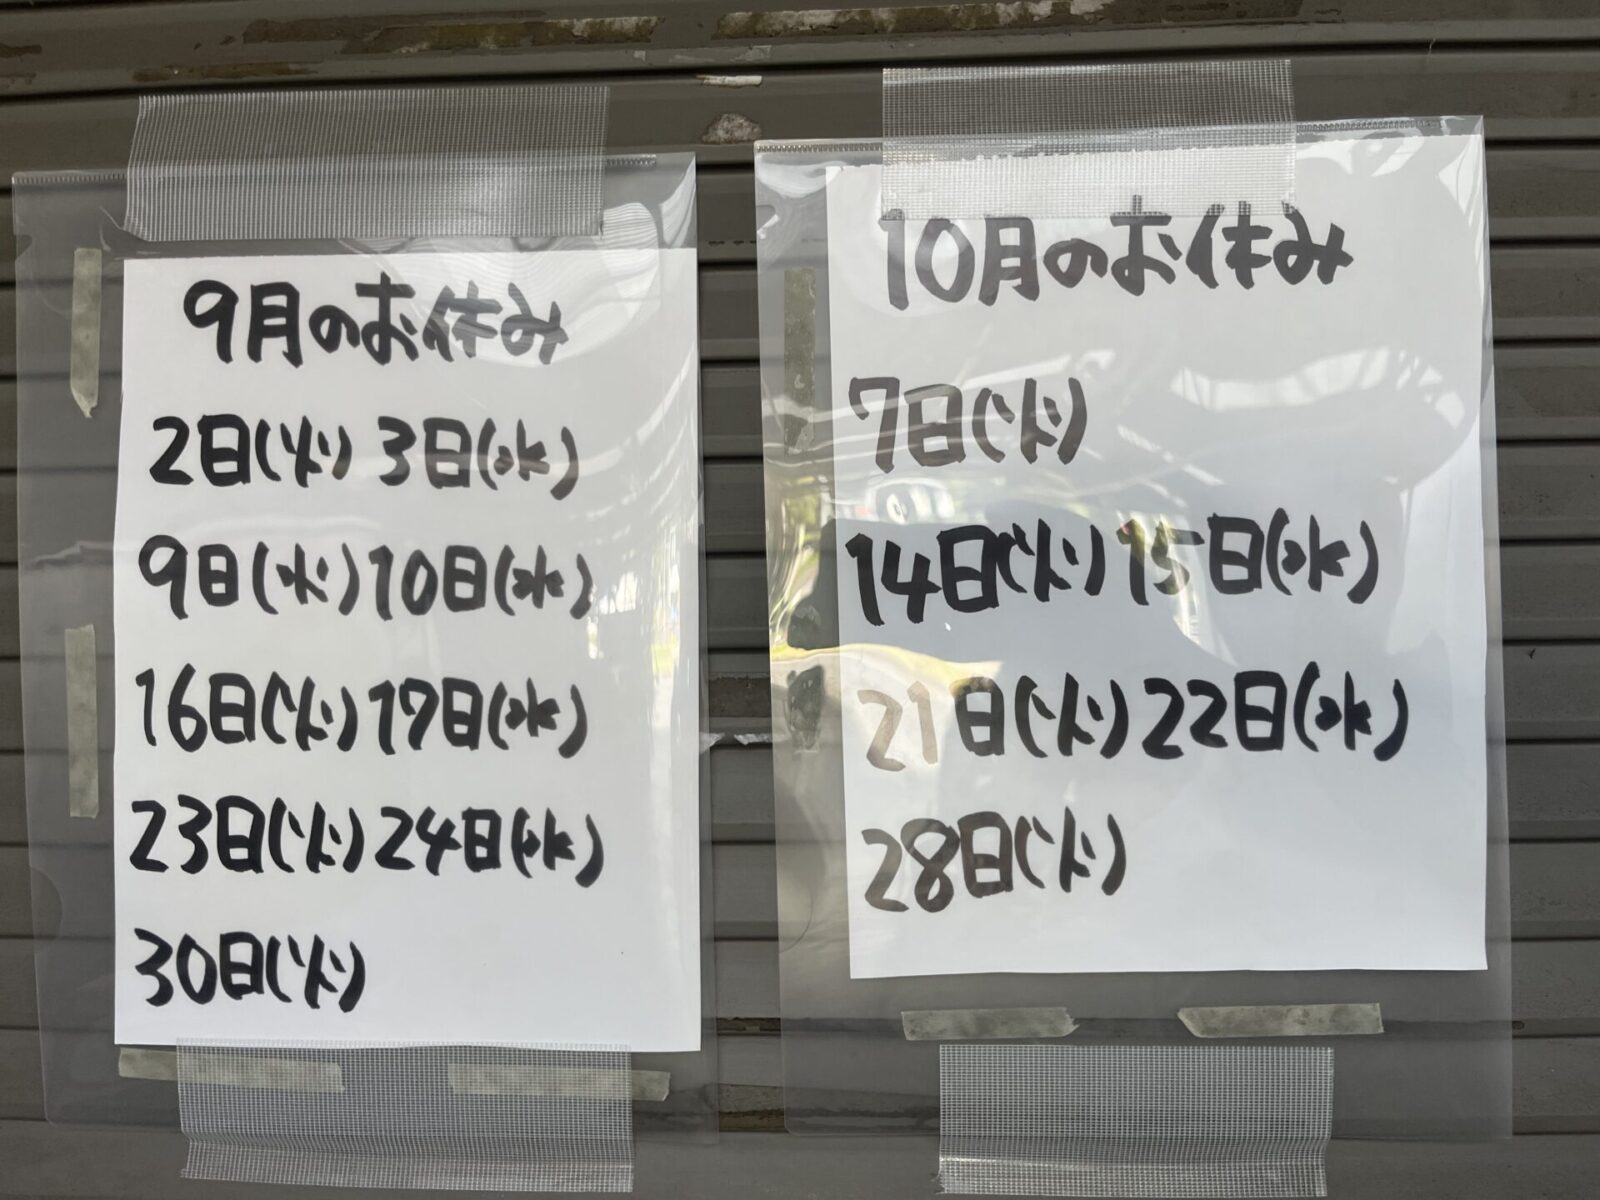 9月のお休み
2日(火) 3日(水)
9日(火)10日(水)
16日(火)17日(水)
23日(火)24日(水)
30日(火)
10月のお休み
7日(火)
14日(火)15日(水)
21日(火)22日(水)
28日(火)